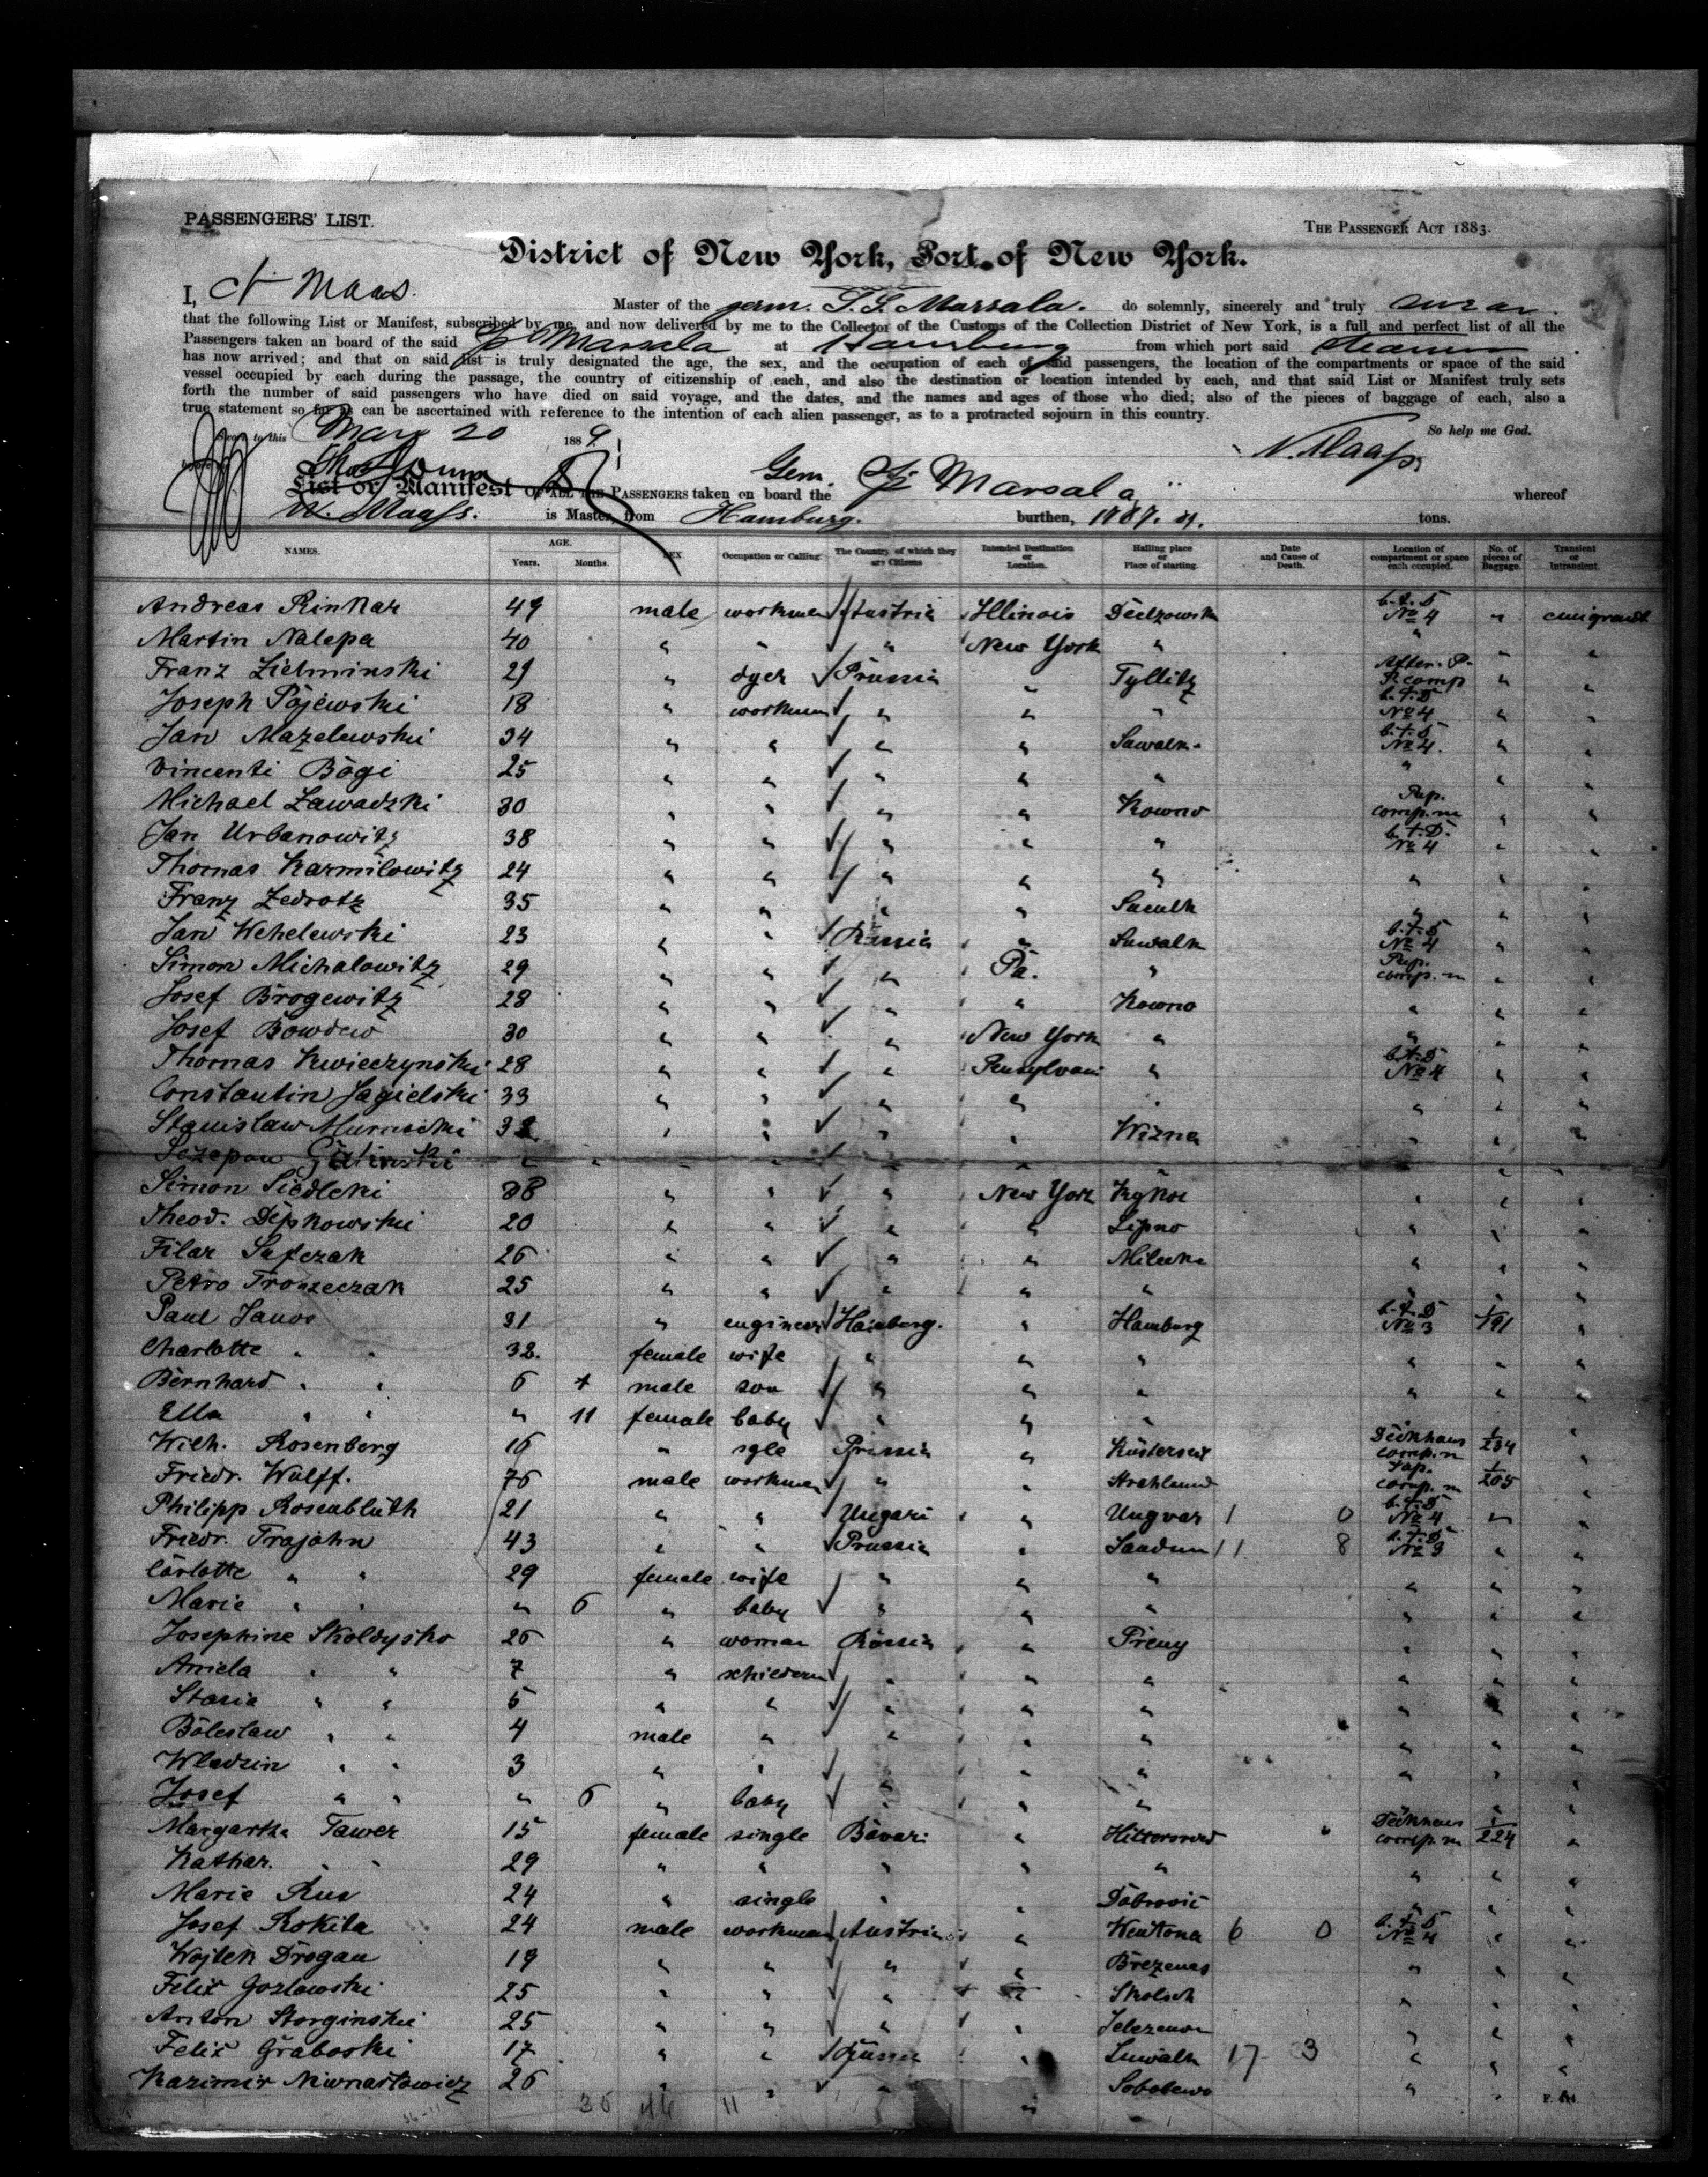 PASSENGERS' LIST.
THE PASSENGER ACT 1883.
District of New York, Port of New York.
I, N Maas. Master of the germ. S. S. Marsala. do solemnly, sincerely and truly swear
that the following List or Manifest, subscribed by me, and now delivered by me to the Collector of the Customs of the Collection District of New York, is a full and perfect list of all the
Passengers taken an board of the said Marsala at Hamburg from which port said steamer
has now arrived; and that on said list is truly designated the age, the sex, and the occupation of each of said passengers, the location of the compartments or space of the said
vessel occupied by each during the passage, the country of citizenship of each, and also the destination or location intended by each, and that said List or Manifest truly sets
forth the number of said passengers who have died on said voyage, and the dates, and the names and ages of those who died; also of the pieces of baggage of each, also a
true statement so far as can be ascertained with reference to the intention of each alien passenger, as to a protracted sojourn in this country.
So help me God.
Sworn to this May 20 1889
N. Maass.
List or Manifest OF ALL THE PASSENGERS taken on board the Germ. SS Marsala whereof
N. Maass. is Master, from Hamburg. burthen, tons.
NAMES. AGE. Years. Months. SEX. Occupation or Calling. The Country of which they are Citizens Intended Destination or Location. Hailing place or Place of starting. Date and Cause of Death. Location of compartment or space each occupied. No. of pieces of Baggage. Transient or Intransient.
Andreas Rinkar 49 male workman Austria Illinois b.t.D No 4 " emigrant
Martin Nalepa 40 " " " New York " " " "
Franz Zielminski 29 " dyer Prussia " Tyllitz After. P. comp " "
Joseph Pojewski 18 " workman " " " b.t.D No 4 " "
Jan Mazelewski 34 " " " " Suwalk. b.t.D No 4. " "
Vincenti Bogi 25 " " " " " " " "
Michael Zawadzki 30 " " " " Kowno comp. m " "
Jan Urbanowitz 38 " " " " " b.t.D. No 4 " "
Thomas Karmilowitz 24 " " " " " " " "
Franz Zedrotz 35 " " " " " " "
Jan Wehelewski 23 " " Russia " Suwalk b.t.D No 4 " "
Simon Michalowitz 29 " " " Pa. " comp. m " "
Josef Brogewitz 28 " " " " Kowno " " "
Josef Bowdew 30 " " " New York " " " "
Thomas Kwieczynski 28 " " " Pensylvani " b.t.D No 4 " "
Constantin Jagielski 33 " " " " " " " "
Stanislaw 32 " " " " Wizna " " "
Simon Siedlecki 38 " " " New York " " "
Theod. Depkowski 20 " " " " Lipno " " "
Filar 26 " " " " " " "
Petro Tronzeczak 25 " " " " " " " "
Paul Janos 31 " engineer Hamburg. " Hamburg b.t.D No 3 1/191 "
Charlotte " " 32. female wife " " " " " "
Bernhard " " 6 male son " " " " " "
Ella " " " 11 female baby " " " " " "
Wilh. Rosenberg 16 " sgle Prussia " Deckhaus comp. m 1/204 "
Friedr. Wulff. 76 male workman " " Strahlund comp. m 1/205 "
Philipp Rosenblüth 21 " " Ungari " Ungvar 1 0 b.t.D No 4 " "
Friedr. Trajahn 43 " " Prussia " 11 8 b.t.D No 3 " "
Carlotte " " 29 female wife " " " " " "
Marie " " " 6 " baby " " " " " "
Josephine Skoldysko 26 " woman Russia " Preny " " "
Aniela " " 7 " " " " " " "
Stasia " " 5 " " " " " " " "
Boleslaw " " 4 male " " " " " " "
Wladzin " " 3 " " " " " " " "
Josef " " " 6 " baby " " " " " "
Margartha Tawer 15 female single Bavari " Deckhaus comp. m 1/224 "
Kathar. " " 29 " " " " " " " "
Marie Rus 24 " single " " " " "
Josef Rokita 24 male workman Austria " 6 0 b.t.D No 4 " "
Wojtek Drogan 19 " " " " " " "
Felix Gozlowski 25 " " " " " " "
Anton Storginski 25 " " " " " " "
Felix Graboski 17 " " Russia " Suwalk 17 3 " " "
Kazimir 26 " " " " Sobolewo " "
36 46 11